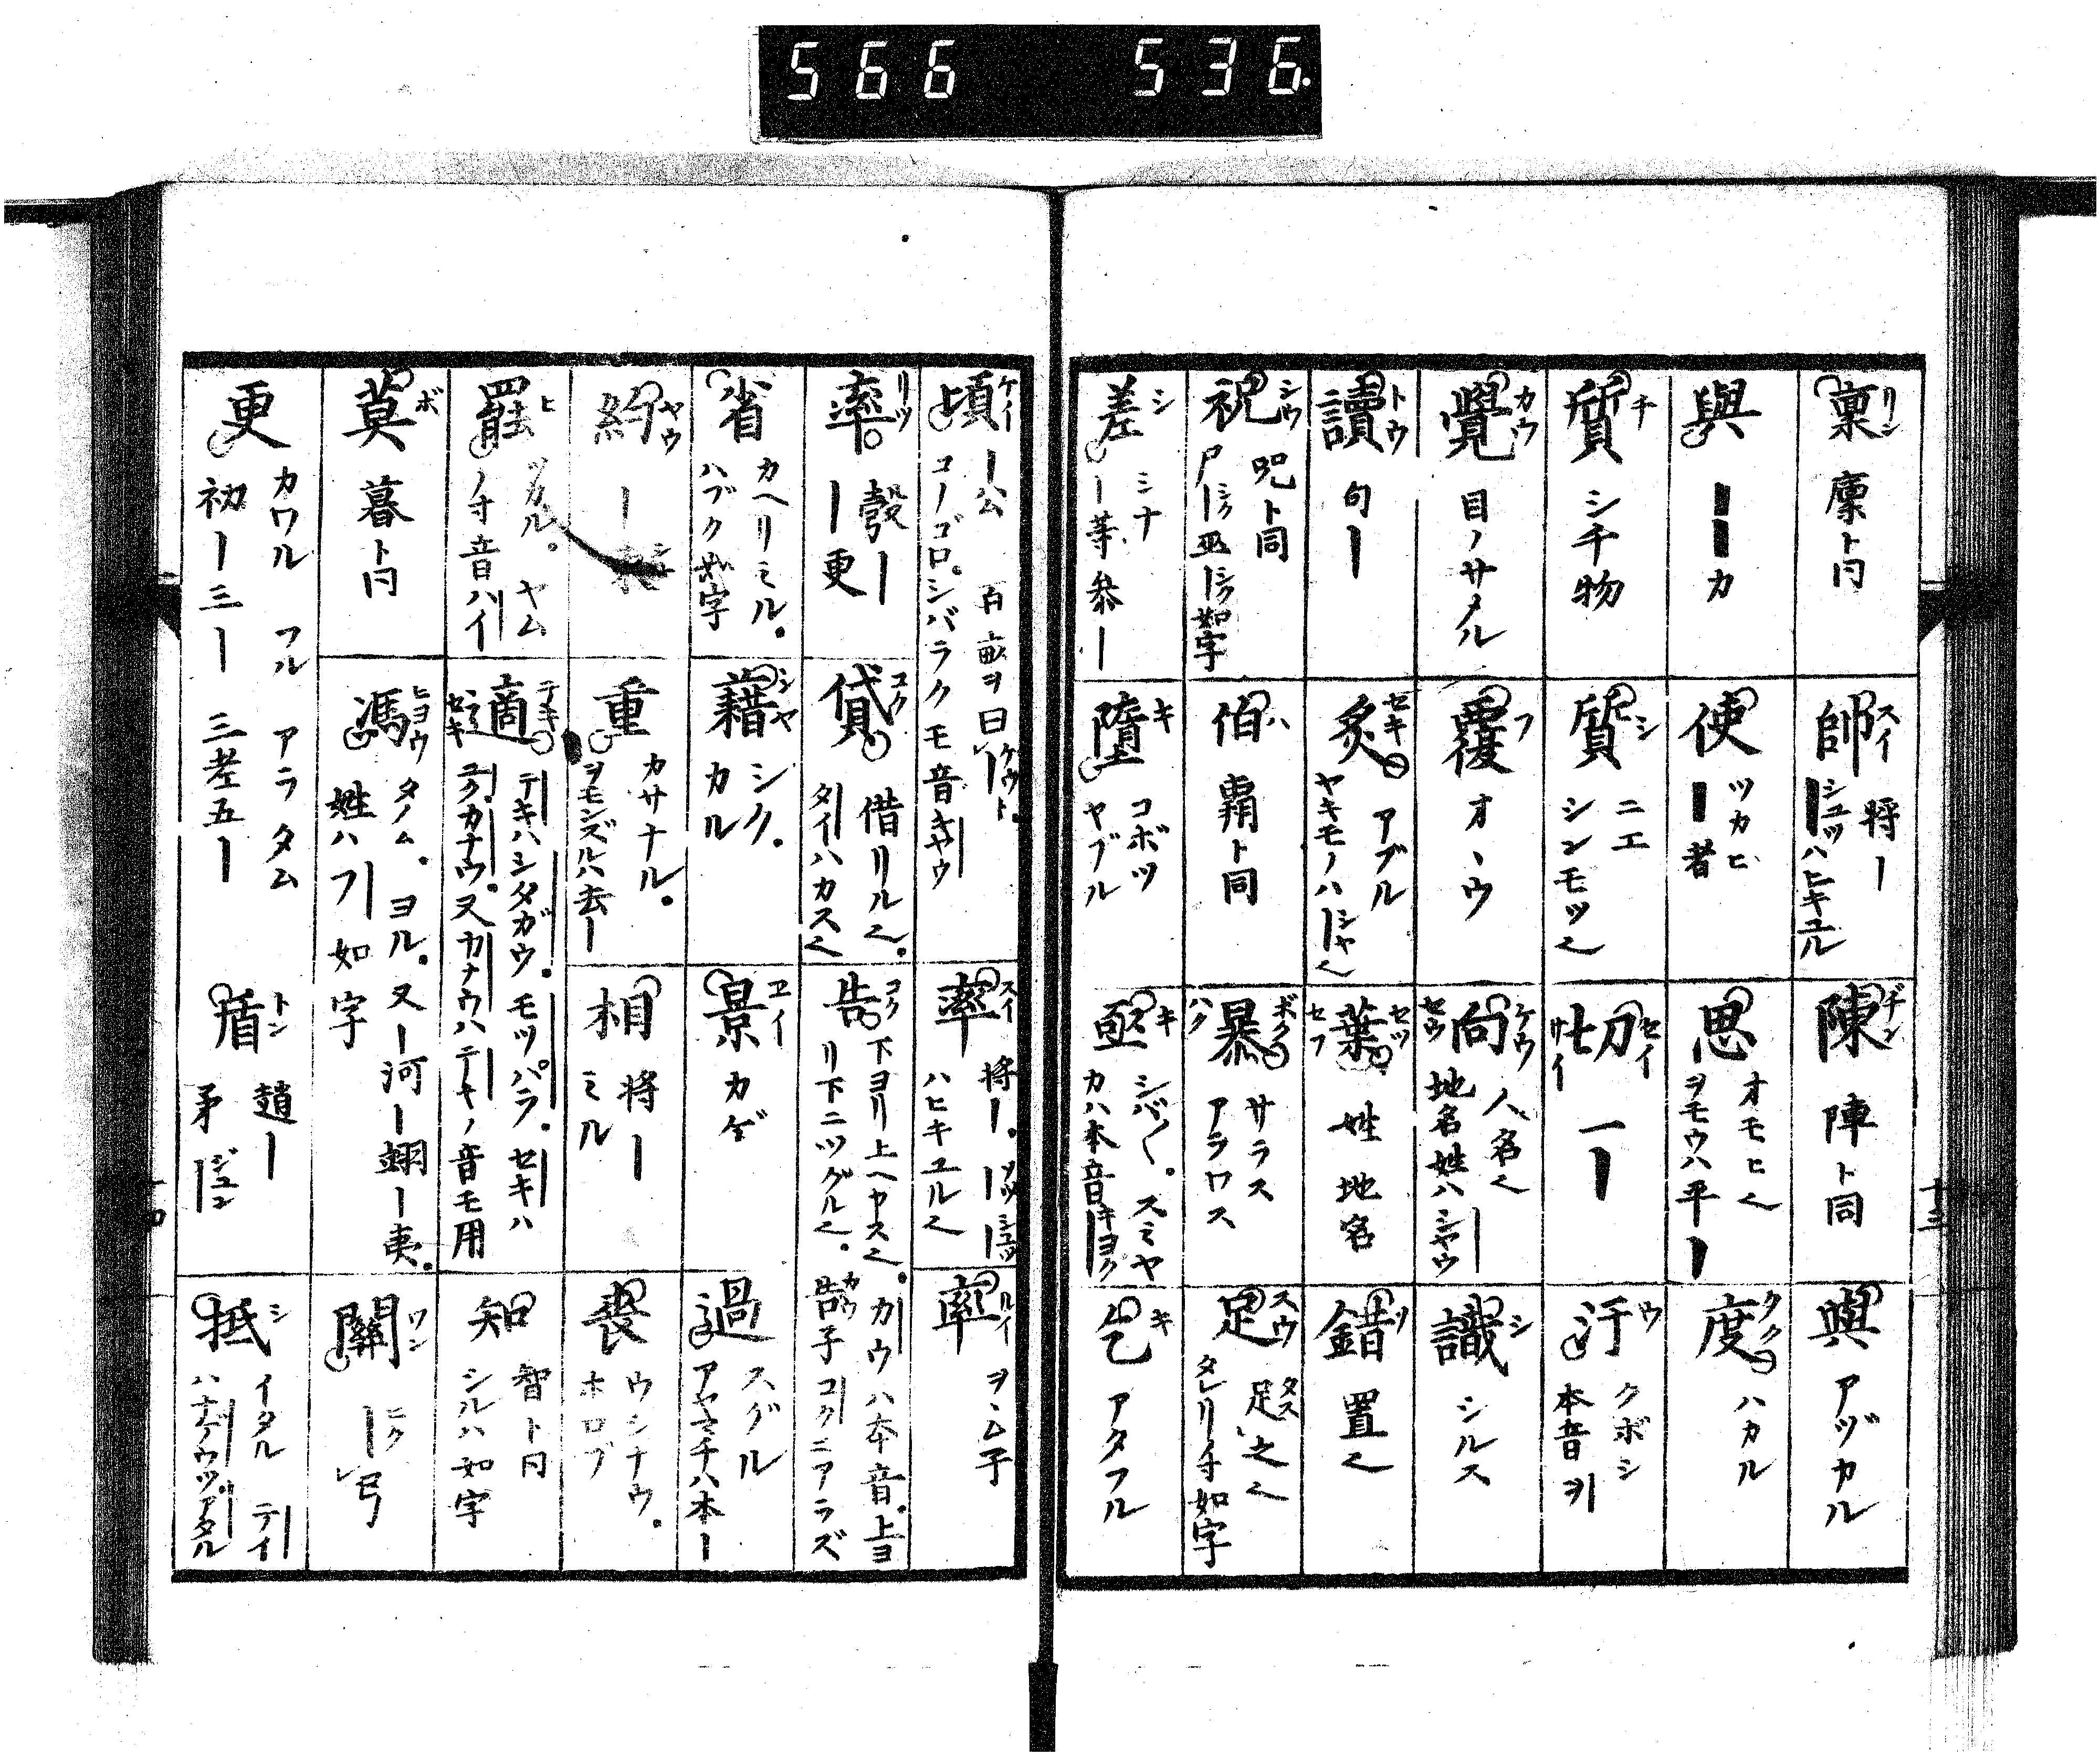 566 536.
稟 リン 廩ト同
帥 スイ 将ー シュツハヒキユル
陳 ヂン 陣ト同
與 アヅカル
與 ーーカ
使 ツカヒ ー者
思 オモヒ ヲモウハ平ー
度 タク ハカル
質 チ シチ物
質 シ ニエ シンモツ
切 セイ サイ 一ー
汙 ウ クボシ 本音ヲ
覺 カウ 目ノサメル
覆 フ オヽウ
向 人名 地名姓ハシャウ
識 シ シルス
讀 トウ 句ー
炙 セキ アブル ヤキモノハシャ
葉 セツ セフ 姓 地名
錯 ソ 置
祝 シウ 呪ト同 尸ー巫ー如字
伯 ハ 覇ト同
暴 ボク ハク サラス アラワス
足 スウ 足之 タレリノ寸如字
差 シ シナ ー等 参ー
墮 キ コボツ ヤブル
亟 キ シバ〱 スミヤカハ本音キヨク
乞 キ アタフル
十三
頃 ケイ ー公 百畝ヲ曰 コノゴロ。シバラクモ音キヤウ
率 スイ 将ー。 ハヒキユル
率 ルイ
率 リツ 彀ー ー更
貸 コク 借リル タイハカス
告 コク 下ヨリ上ヘヤス。カウハ本音。上ヨリ下ニツグル。告子コクニアラズ
省 カヘリミル。 ハブク如字
藉 シャ シク。 カル
景 エイ カゲ
過 スグル アヤマチハ本ー
約 ヤウ
重 カサナル。 ヲモンズルハ去ー
相 将ー ミル
喪 ウシナウ。 ホロブ
罷 ヒ ツカル。 ヤム ノ寸音ハイ
適 テキ セキ テキハシタガウ。モツパラ。セキハ ユク。カナウ。又カナウハテキノ音モ用
知 智ト同 シルハ如字
莫 ボ 暮ト同
馮 ヒョウ タノム。ヨル。又ー河ー翊ー夷。 姓ハフ 如字
關 ワン ー弓
更 カワル フル アラタム 初ー三ー 三老五ー
盾 トン 趙ー 矛ジュン
抵 シ イタル テイ